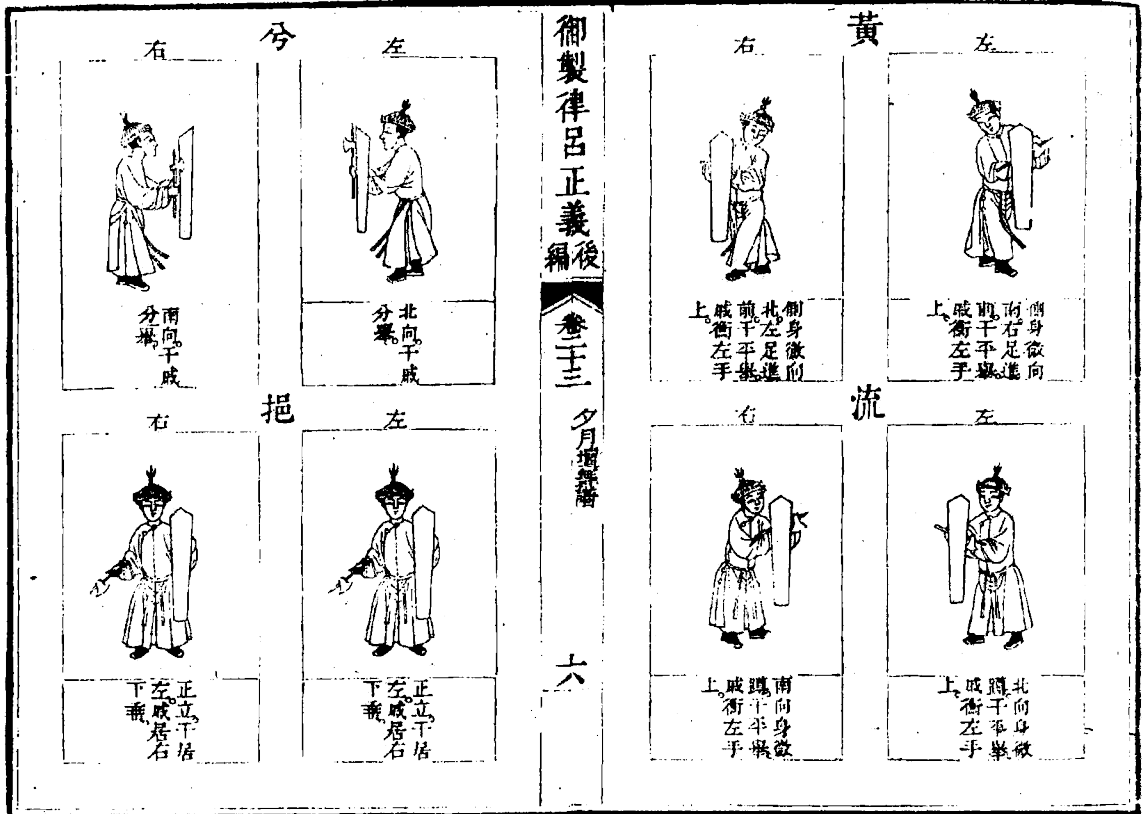 黃
左
側身微向
南右足進
前干平舉
戚衡左手
上
右
側身微向
北左足進
前干平舉
戚衡左手
上
流
左
北向身微
蹲干平舉
戚衡左手
上
右
南向身微
蹲干平舉
戚衡左手
上
御製律呂正義後編
卷二十三
夕月壇舞譜
六
兮
左
北向干戚
分舉
右
南向干戚
分舉
挹
左
正立干居
左戚居右
下垂
右
正立干居
左戚居右
下垂